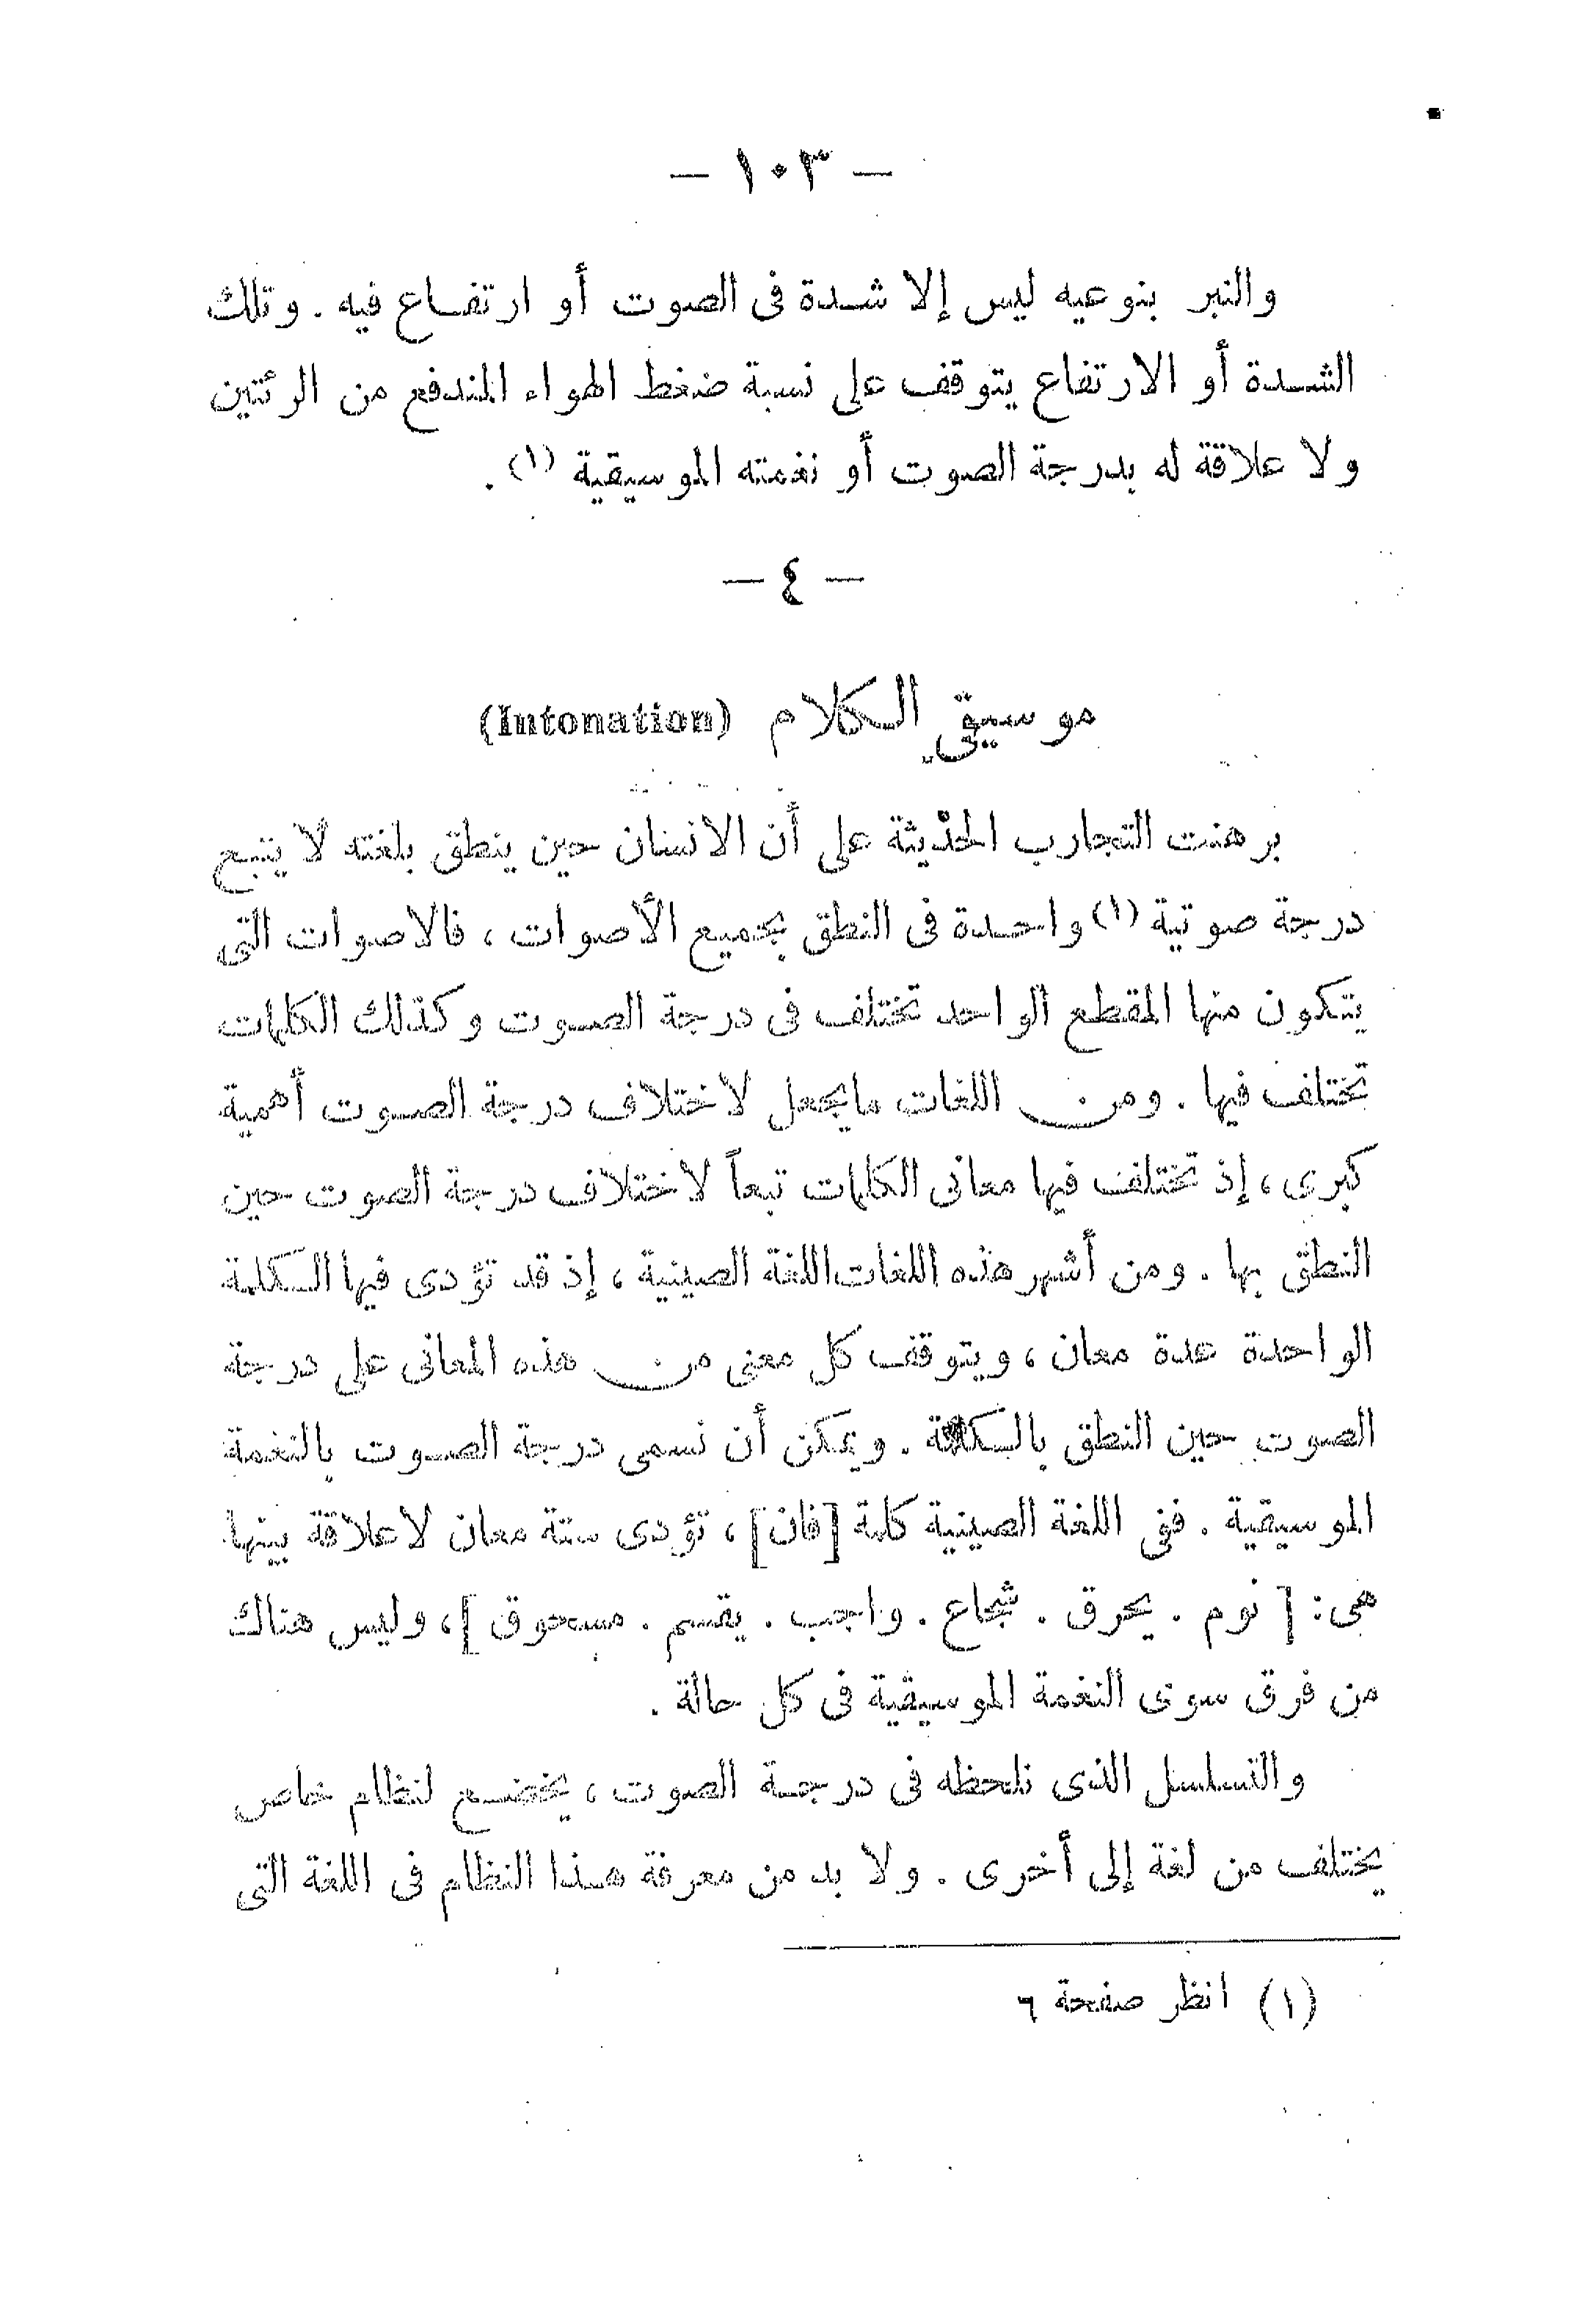 — ١٠٣ —
والنبر بنوعيه ليس إلا شدة فى الصوت أو ارتفاع فيه . وتلك
الشدة أو الارتفاع يتوقف على نسبة ضغط الهواء المندفع من الرئتين
ولا علاقة له بدرجة الصوت أو نغمته الموسيقية (١) .
— ٤ —
موسيقى الكلام (Intonation)
برهنت التجارب الحديثة على أن الانسان حين ينطق بلغته لا يتبع
درجة صوتية (١) واحدة فى النطق بجميع الأصوات ، فالاصوات التى
يتكون منها المقطع الواحد تختلف فى درجة الصوت وكذلك الكلمات
تختلف فيها . ومن اللغات مايجعل لاختلاف درجة الصوت أهمية
كبرى ، إذ تختلف فيها معانى الكلمات تبعاً لاختلاف درجة الصوت حين
النطق بها . ومن أشهر هذه اللغات اللغة الصينية ، إذ قد تؤدى فيها الكلمة
الواحدة عدة معان ، ويتوقف كل معنى من هذه المعانى على درجة
الصوت حين النطق بالكلمة . ويمكن أن نسمى درجة الصوت بالنغمة
الموسيقية . ففى اللغة الصينية كلمة [فان] ، تؤدى ستة معان لاعلاقة بينها
هى : [ نوم . يحرق . شجاع . واجب . يقسم . مسحوق ] ، وليس هناك
من فرق سوى النغمة الموسيقية فى كل حالة .
والتسلسل الذى نلحظه فى درجة الصوت ، يخضع لنظام خاص
يختلف من لغة إلى أخرى . ولا بد من معرفة هذا النظام فى اللغة التى
(١) انظر صفحة ٦